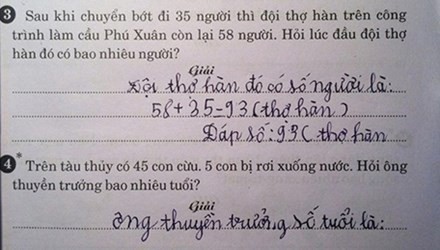 3 Sau khi chuyển bớt đi 35 người thì đội thợ hàn trên công
trình làm cầu Phú Xuân còn lại 58 người. Hỏi lúc đầu đội thợ
hàn đó có bao nhiêu người?
Giải
Đội thợ hàn đó có số người là:
58+35=93 (thợ hàn)
Đáp số: 93 (thợ hàn
4* Trên tàu thủy có 45 con cừu. 5 con bị rơi xuống nước. Hỏi ông
thuyền trưởng bao nhiêu tuổi?
Giải
Ông thuyền trưởng số tuổi là: